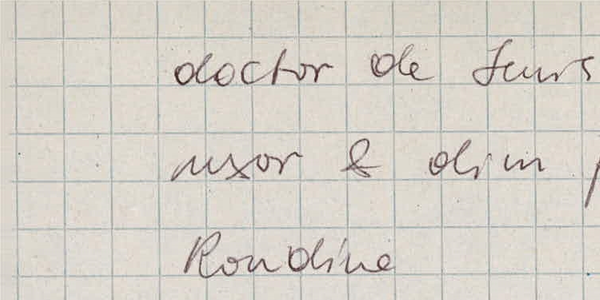 doctor de
uxor & olim
Rondine